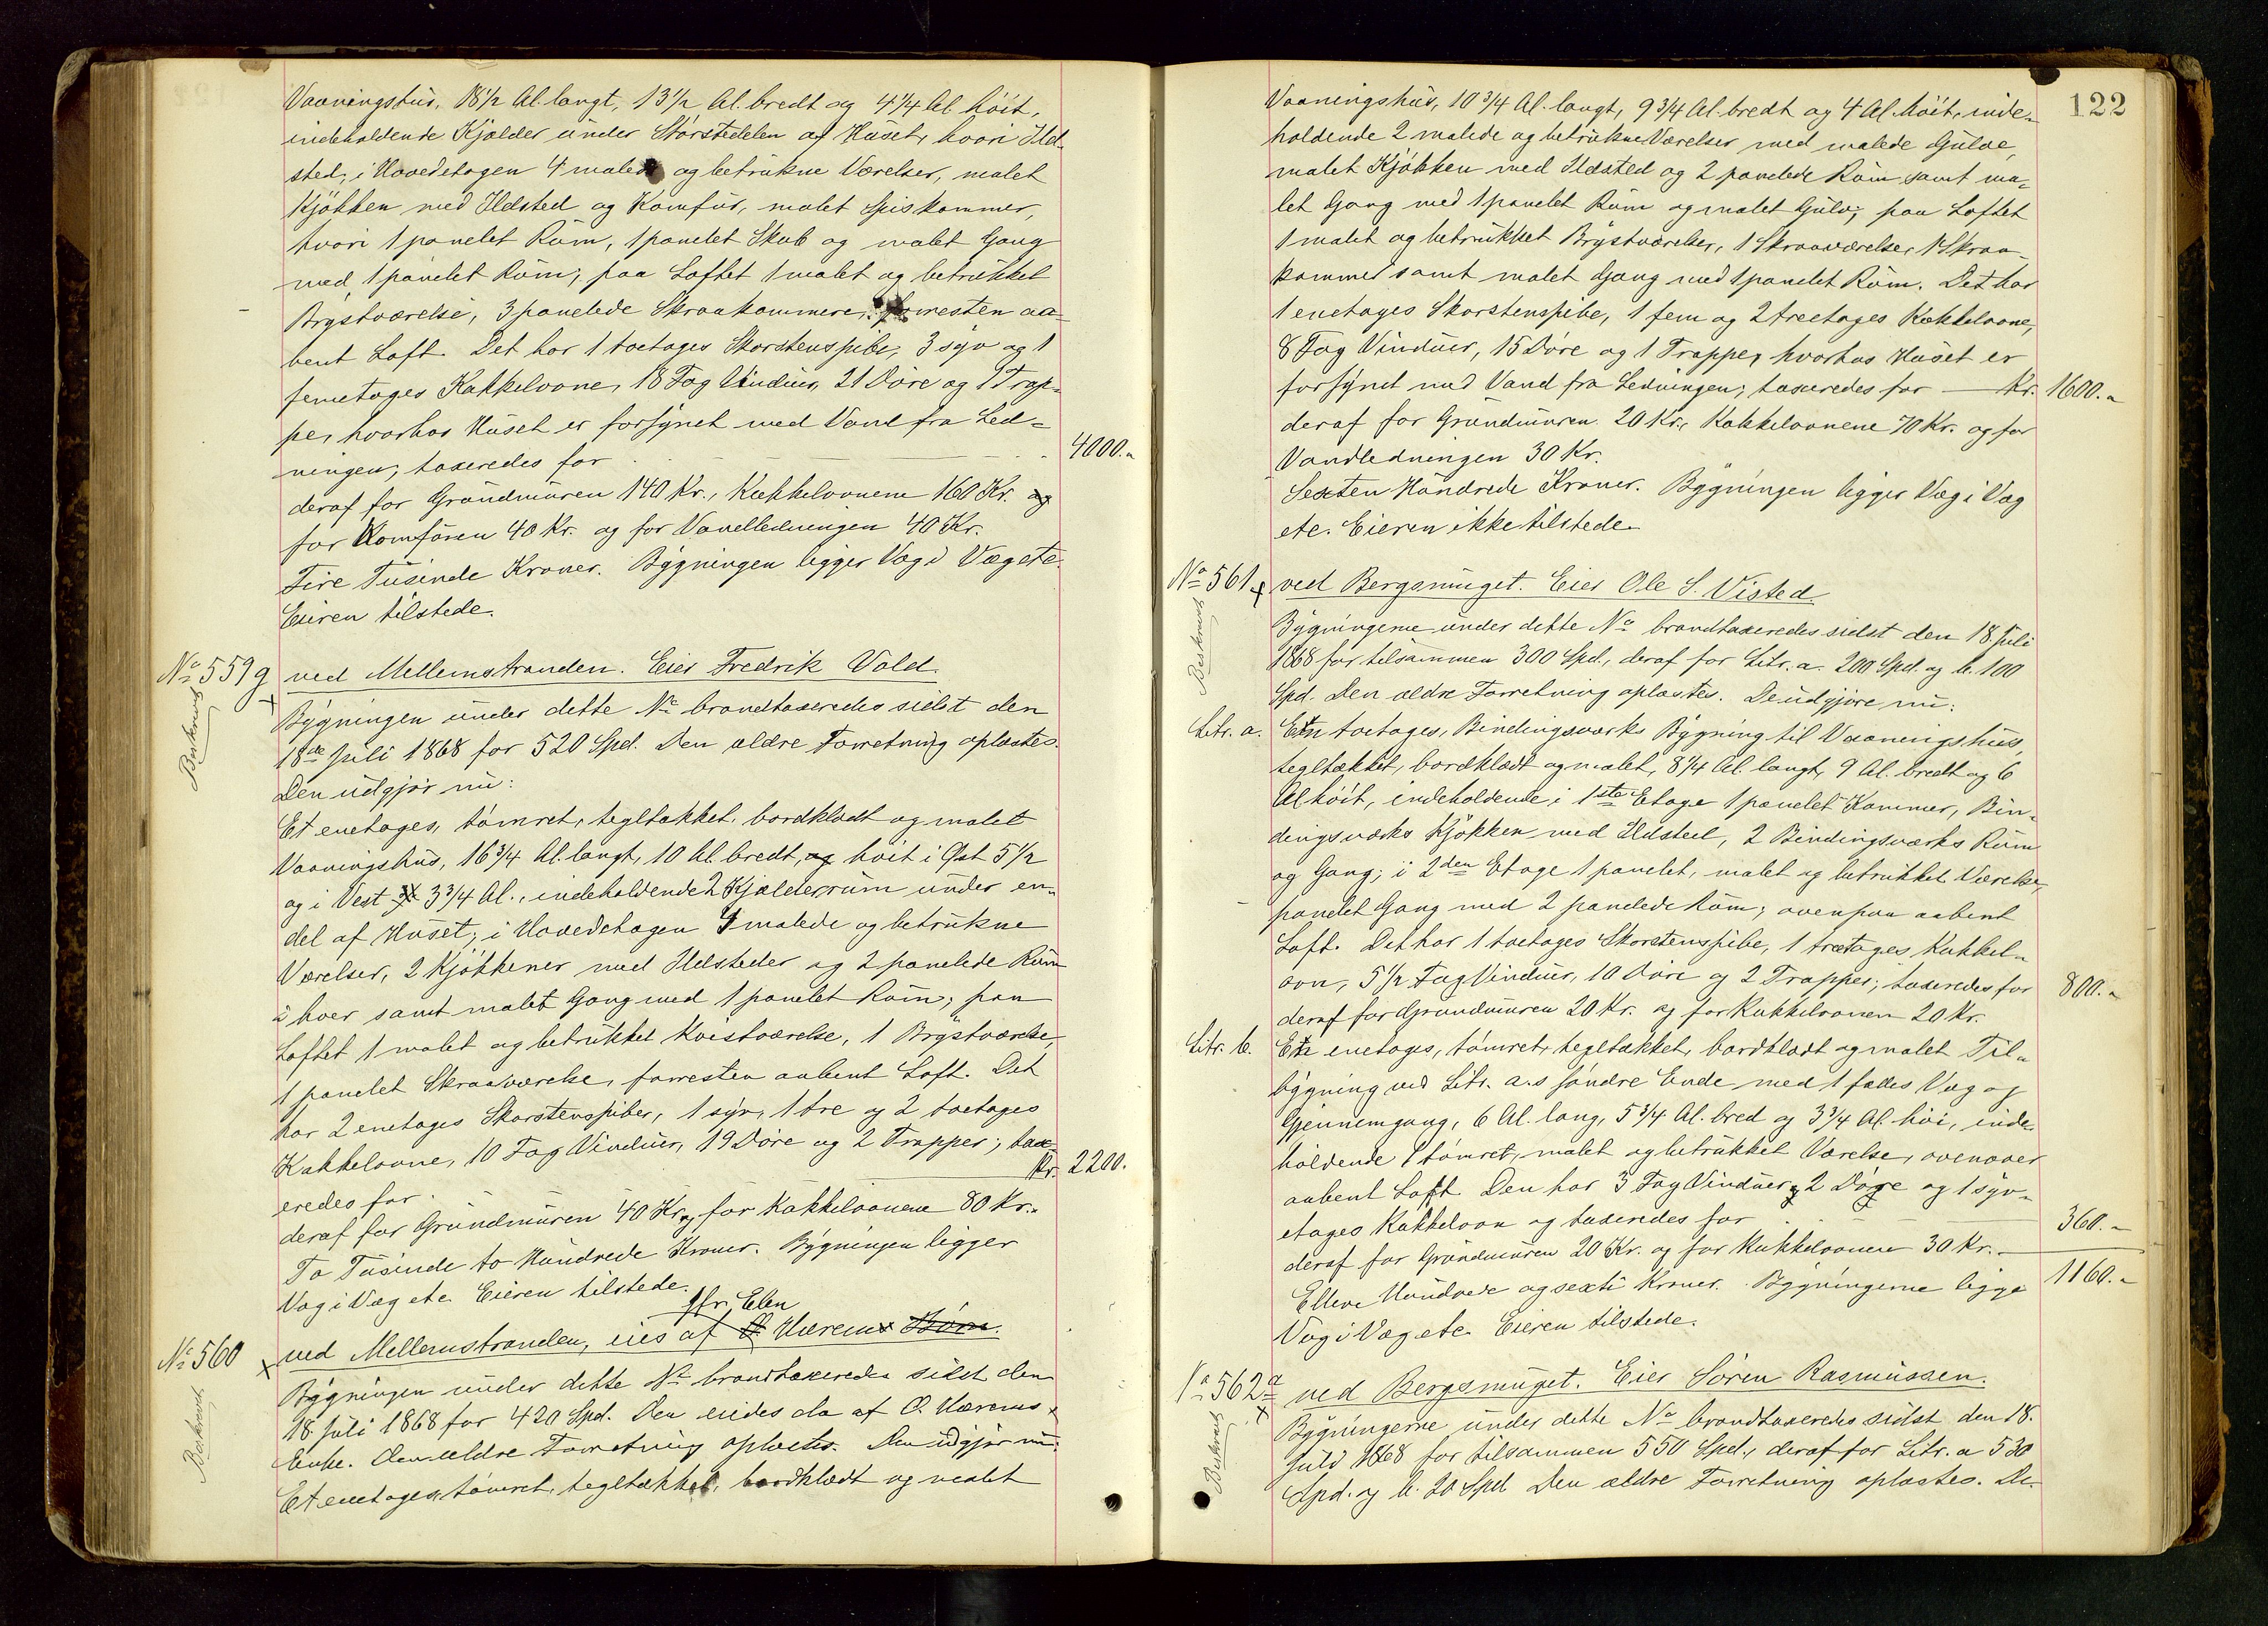 Vaaningshus, 18 1/2 Al. langt, 13 1/2 Al. bredt og 4 1/4 Al. höit,
indeholdende Kjælder under Störstedelen af Huset, hvori Ild-
sted; i Hovedetagen 4 malede og betrukne Værelser, malet
Kjökken med Ildsted og Komfur, malet Spiskammer,
hvori 1 panelet Rum, 1 panelet Skab og malet Gang
med 1 panelet Rum; paa Loftet 1 malet og betrukket
Brystværelse, 3 panelede Skraakammere, forresten aa-
bent Loft. Det har 1 toetages Skorstenspibe, 3 syv og 1
femetages Kakkelovne, 18 Fag Vinduer, 21 Döre og 1 Trap-
pe, hvorhos Huset er forsynet med Vand fra Led-
ningen; taxeredes for 4000.-
deraf for Grundmuren 140 Kr., Kakkelovnene 160 Kr. og
for Komfuren 40 Kr. og for Vandledningen 40 Kr.
Fire Tusinde Kroner. Bygningen ligger Væg i Væg etc.
Eieren tilstede.
No 559g ved Mellemstranden. Eier Fredrik Vold.
Beskrevet
Bygningen under dette No brandtaxeredes sidst den
18de Juli 1868 for 520 Spd. Den ældre Forretning oplæstes.
Den udgjör nu:
Et enetages, tömret, tegltækket, bordklædt og malet
Vaaningshus, 16 3/4 Al. langt, 10 Al. bredt, og höit i Øst 5 1/2
og i Vest 3 3/4 Al., indeholdende 2 Kjælderrum under en-
del af Huset; i Hovedetagen 4 malede og betrukne
Værelser, 2 Kjökkener med Ildsteder og 2 panelede Rum
i hver samt malet Gang med 1 panelet Rum; paa
Loftet 1 malet og betrukket Kvistværelse, 1 Brystværelse,
1 panelet Skraaværelse, forresten aabent Loft. Det
har 2 enetages Skorstenspiber, 1 syv, 1 tre og 2 toetages
Kakkelovne, 10 Fag Vinduer, 19 Döre og 2 Trapper; tax-
eredes for Kr. 2200.
deraf for Grundmuren 40 Kr. og for Kakkelovnene 80 Kr.
To Tusinde to Hundrede Kroner. Bygningen ligger
Væg i Væg etc. Eieren tilstede.
Jfr. Elen
No 560 ved Mellemstranden, eies af O. Hærems Börn.
Beskrevet
Bygningen under dette No brandtaxeredes sidst den
18 Juli 1868 for 420 Spd. Den eiedes da af O. Hærems
Enke. Den ældre Forretning oplæstes. Den udgjör nu:
Et enetages, tömret, tegltækket, bordklædt og malet
122
Vaaningshus, 10 3/4 Al. langt, 9 3/4 Al. bredt og 4 Al. höit, inde-
holdende 2 malede og betrukne Værelser med malede Gulve,
malet Kjökken med Ildsted og 2 panelede Rum samt ma-
let Gang med 1 panelet Rum og malet Gulv; paa Loftet
1 malet og betrukket Brystværelse, 1 Skraaværelse, 1 Skraa-
kammer samt malet Gang med 1 panelet Rum. Det har
1 enetages Skorstenspibe, 1 fem og 2 treetages Kakkelovne,
8 Fag Vinduer, 15 Döre og 1 Trappe, hvorhos Huset er
forsynet med Vand fra Ledningen; taxeredes for Kr. 1600.-
deraf for Grundmuren 20 Kr., Kakkelovnene 70 Kr. og for
Vandledningen 30 Kr.
Sexten Hundrede Kroner. Bygningen ligger Væg i Væg
etc. Eieren ikke tilstede.
No 561 ved Bergsmuget. Eier Ole S. Visted.
Beskrevet
Bygningerne under dette No brandtaxeredes sidst den 18 Juli
1868 for tilsammen 300 Spd., deraf for Litr. a. 200 Spd. og b. 100
Spd. Den ældre Forretning oplæstes. De udgjöre nu:
Litr. a. En toetages, Bindingsværks Bygning til Vaaningshus,
tegltækket, bordklædt og malet, 8 1/4 Al. langt, 9 Al. bredt og 6
Al. höit, indeholdende i 1ste Etage 1 panelet Kammer, Bin-
dingsværks Kjökken med Ildsted, 2 Bindingsværks Rum
og Gang; i 2den Etage 1 panelet, malet og betrukket Værelse,
panelet Gang med 2 panelede Rum; ovenpaa aabent
Loft. Det har 1 toetages Skorstenspibe, 1 treetages Kakkel-
ovn, 5 1/2 Fag Vinduer, 10 Döre og 2 Trapper; taxeredes for 800.-
deraf for Grundmuren 20 Kr. og for Kakkelovnen 20 Kr.
Litr. b. En enetages, tömret, tegltækket, bordklædt og malet Til-
bygning ved Litr. a.s söndre Ende med 1 fælles Væg og
Gjennemgang, 6 Al. lang, 5 3/4 Al. bred og 3 3/4 Al. höi, inde-
holdende 1 tömret, malet og betrukket Værelse, ovenover
aabent Loft. Den har 3 Fag Vinduer, 2 Döre og 1 syv-
etages Kakkelovn og taxeredes for 360.-
deraf for Grundmuren 20 Kr. og for Kakkelovnen 30 Kr.
1160.-
Elleve Hundrede og sexti Kroner. Bygningerne ligge
Væg i Væg etc. Eieren tilstede.
No 562a ved Bergsmuget. Eier Sören Rasmussen.
Beskrevet
Bygningerne under dette No brandtaxeredes sidst den 18.
Juli 1868 for tilsammen 550 Spd., deraf for Litr. a 530
Spd. og b. 20 Spd. Den ældre Forretning oplæstes. De